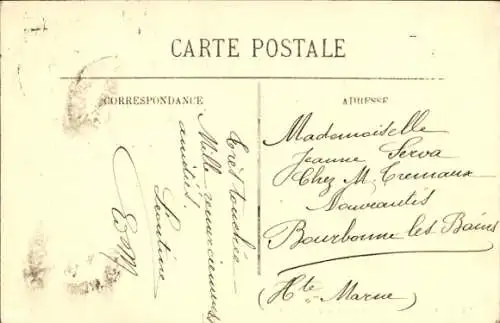 CARTE POSTALE
CORRESPONDANCE
Très touchée
Mille remerciements
amitiés.
Léontine
ADRESSE
Mademoiselle
Jeanne Serva
Chez M. Tremaux
Nouveautés
Bourbonne les Bains
(Hte Marne)